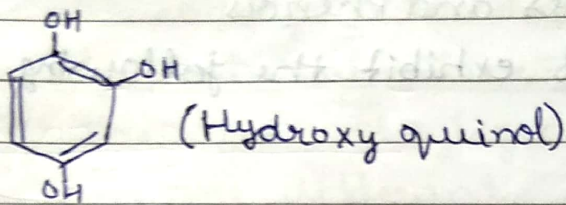 OH
OH
(Hydroxy quinol)
OH